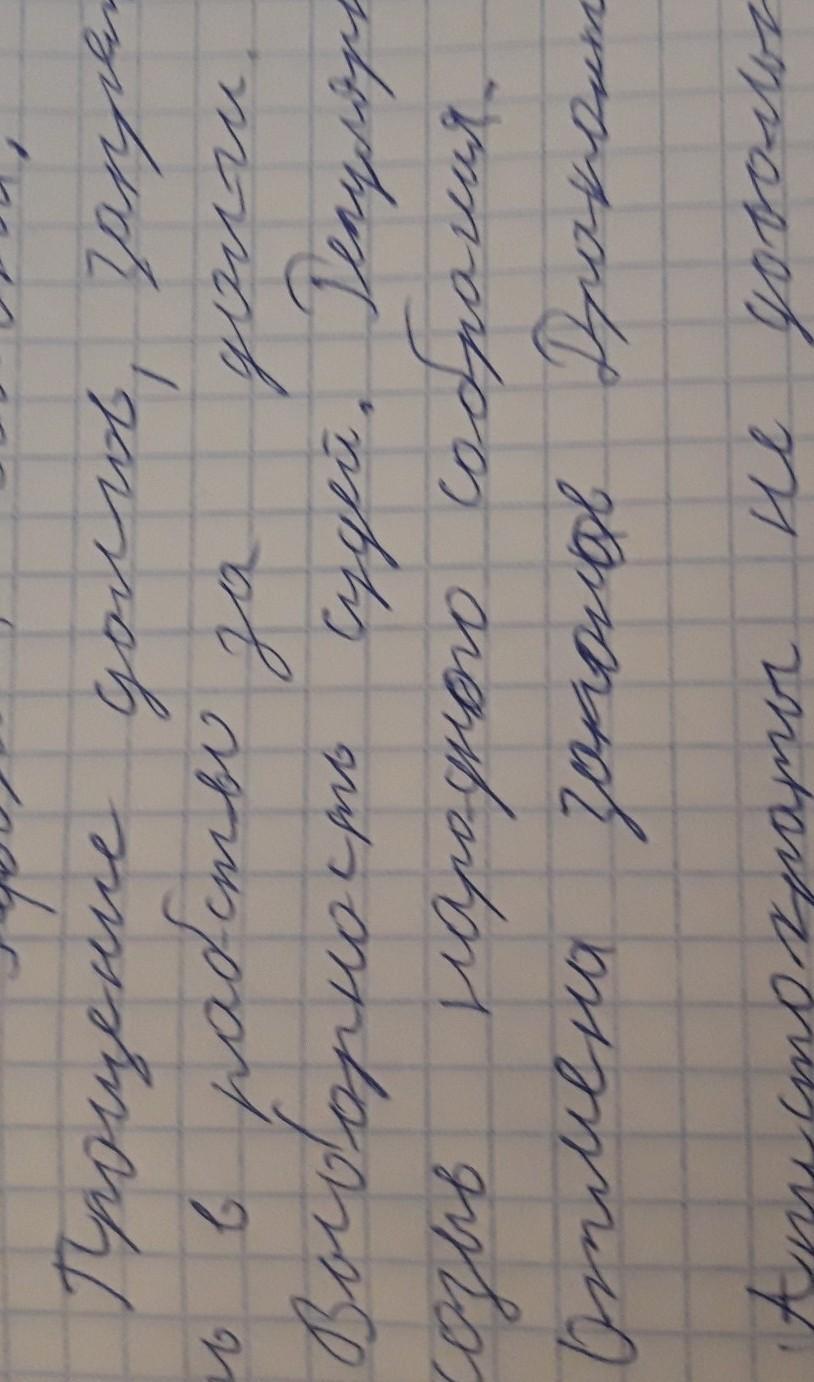 Прощение долгов, запре
ь в рабство за долги.
Выборность судей. Регуляр
созыв народного собрания.
Отмена законов Драконт
Аристократы не доволь